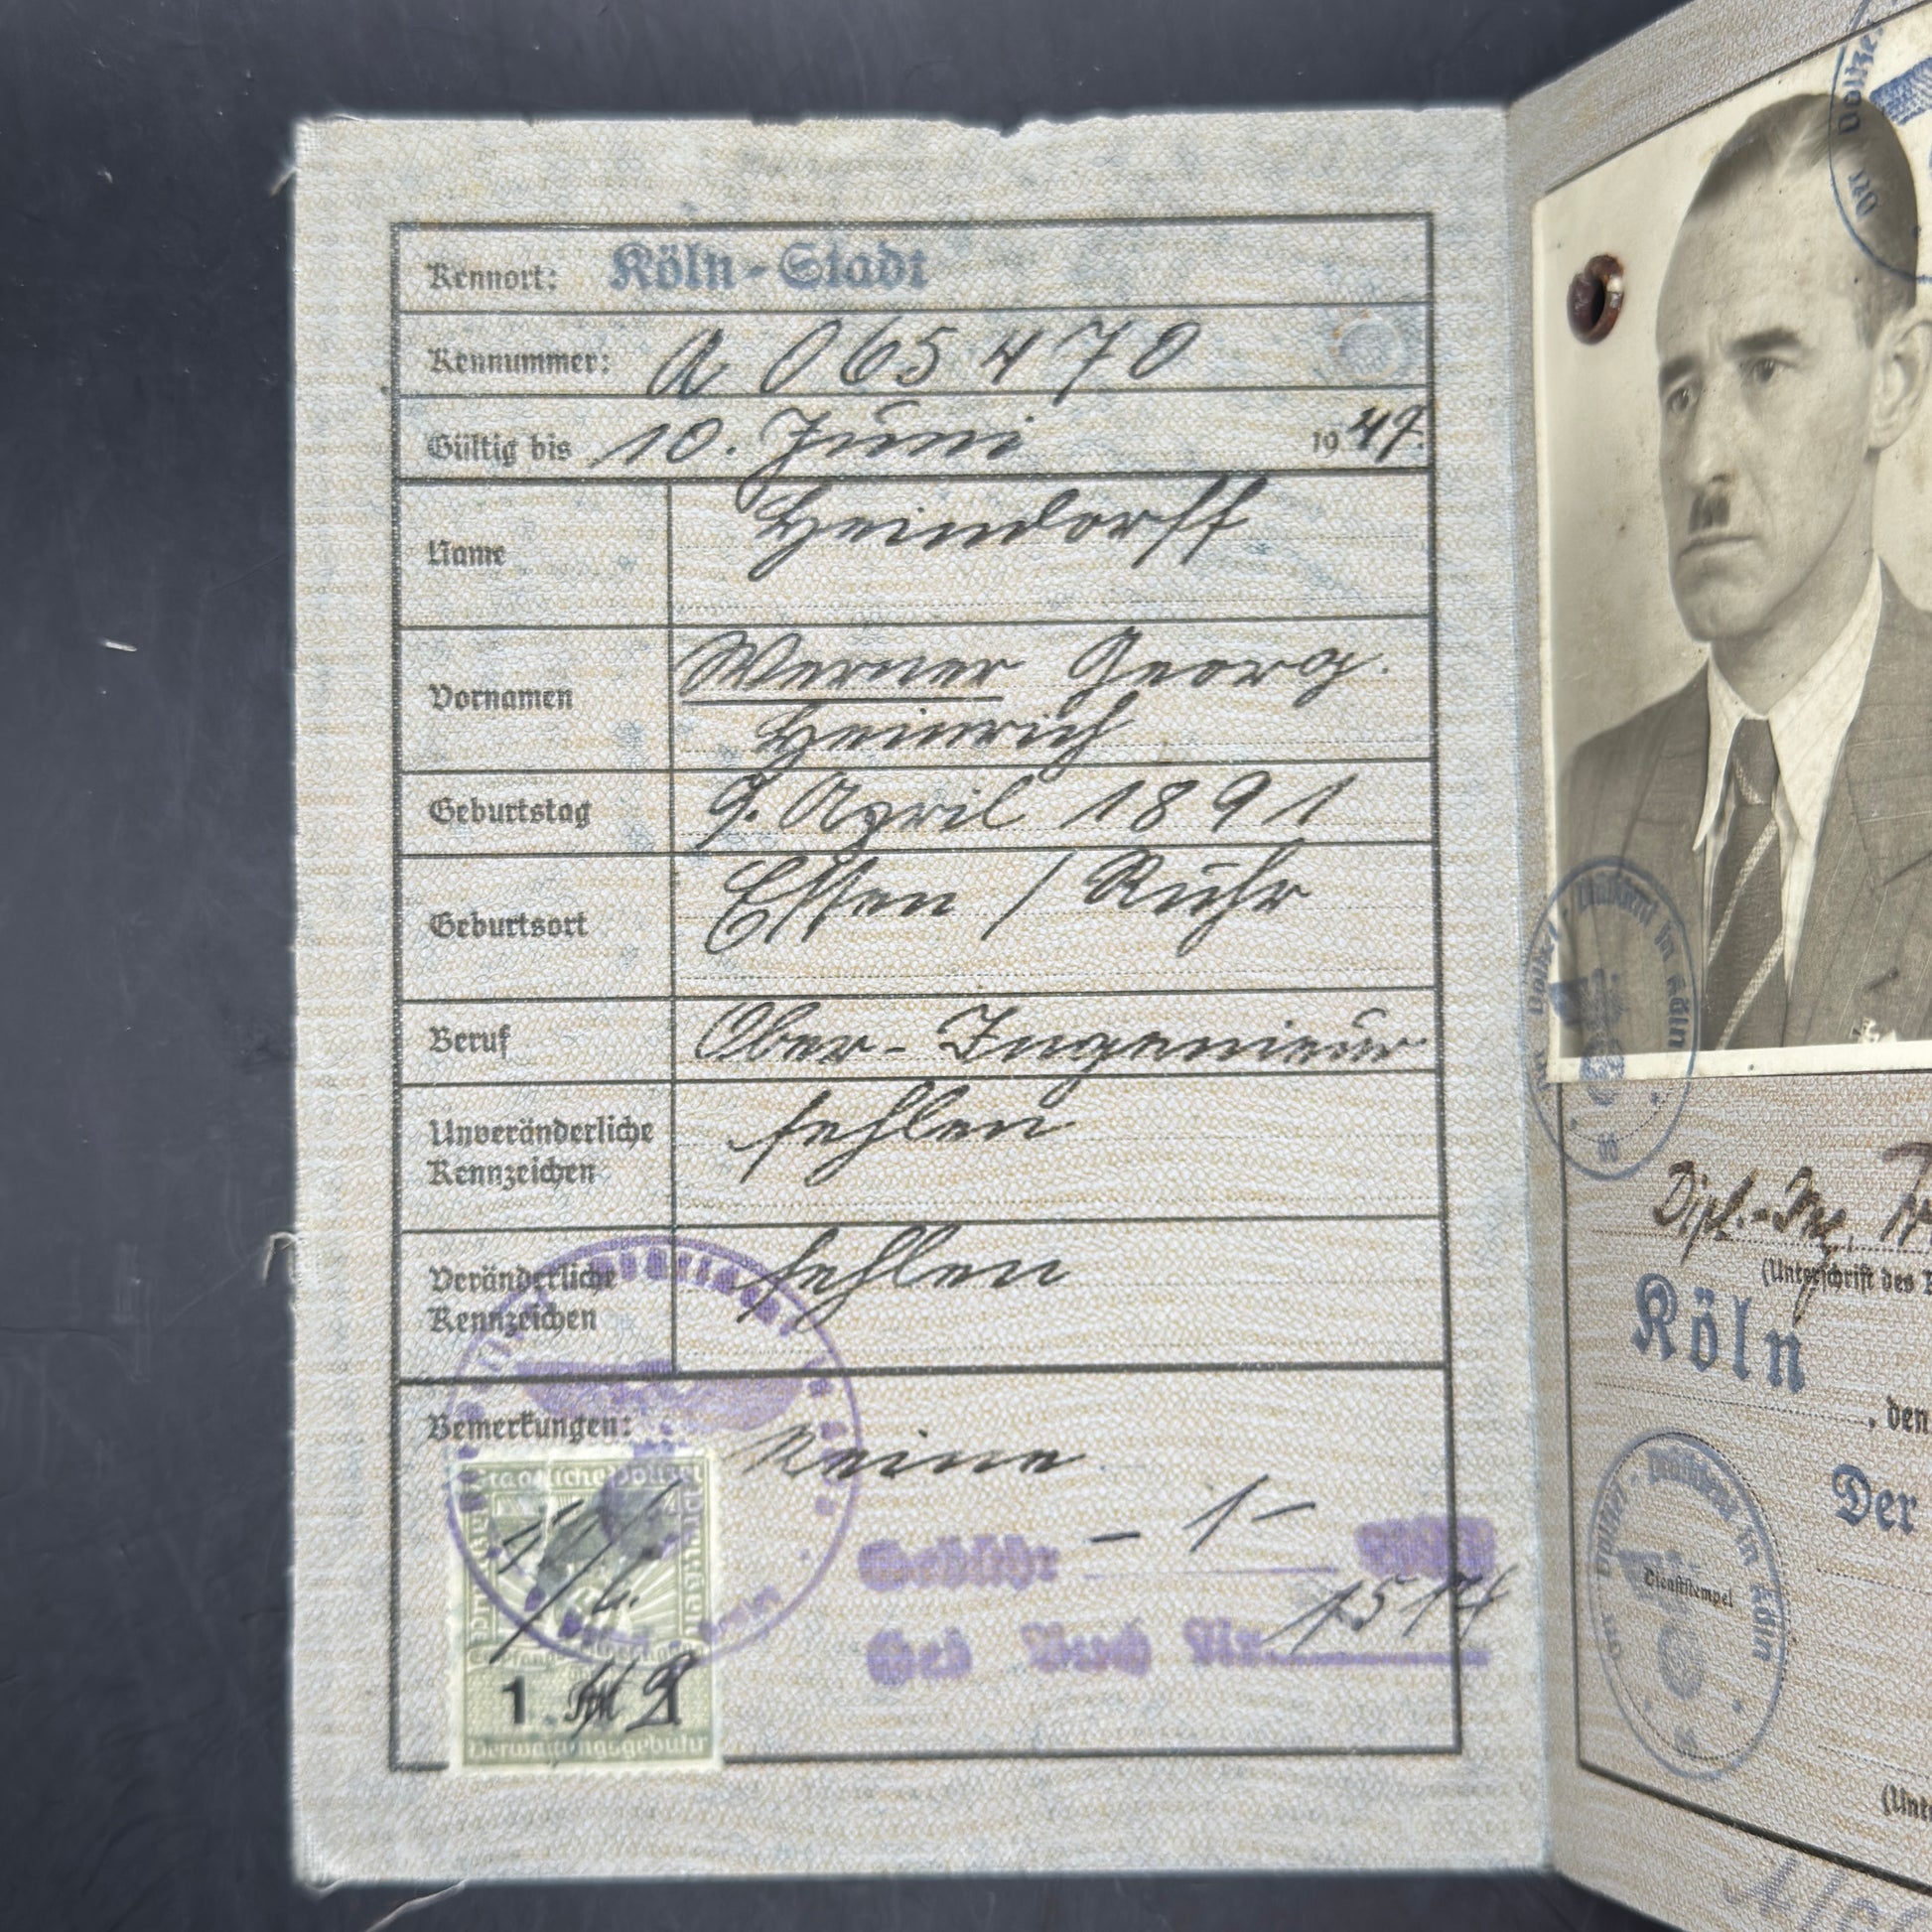 Kennort: Köln-Stadt
Kennummer: A 065470
Gültig bis 10. Juni 1947.
Name Heindorff
Vornamen Werner Georg.
Heinrich
Geburtstag 9. April 1891
Geburtsort Essen / Ruhr
Beruf Ober-Ingenieur
Unveränderliche Kennzeichen fehlen
Veränderliche Kennzeichen fehlen
Bemerkungen: Keine
Gebühr - 1 -
Geb Buch Nr. 1514
Staatliche Polizei
1. RM 1
Verwaltungsgebühr
Polizei
Der Polizei
Köln
Dipl.-Ing.
(Unterschrift des
Köln
, den
Der
Dienststempel
in Köln